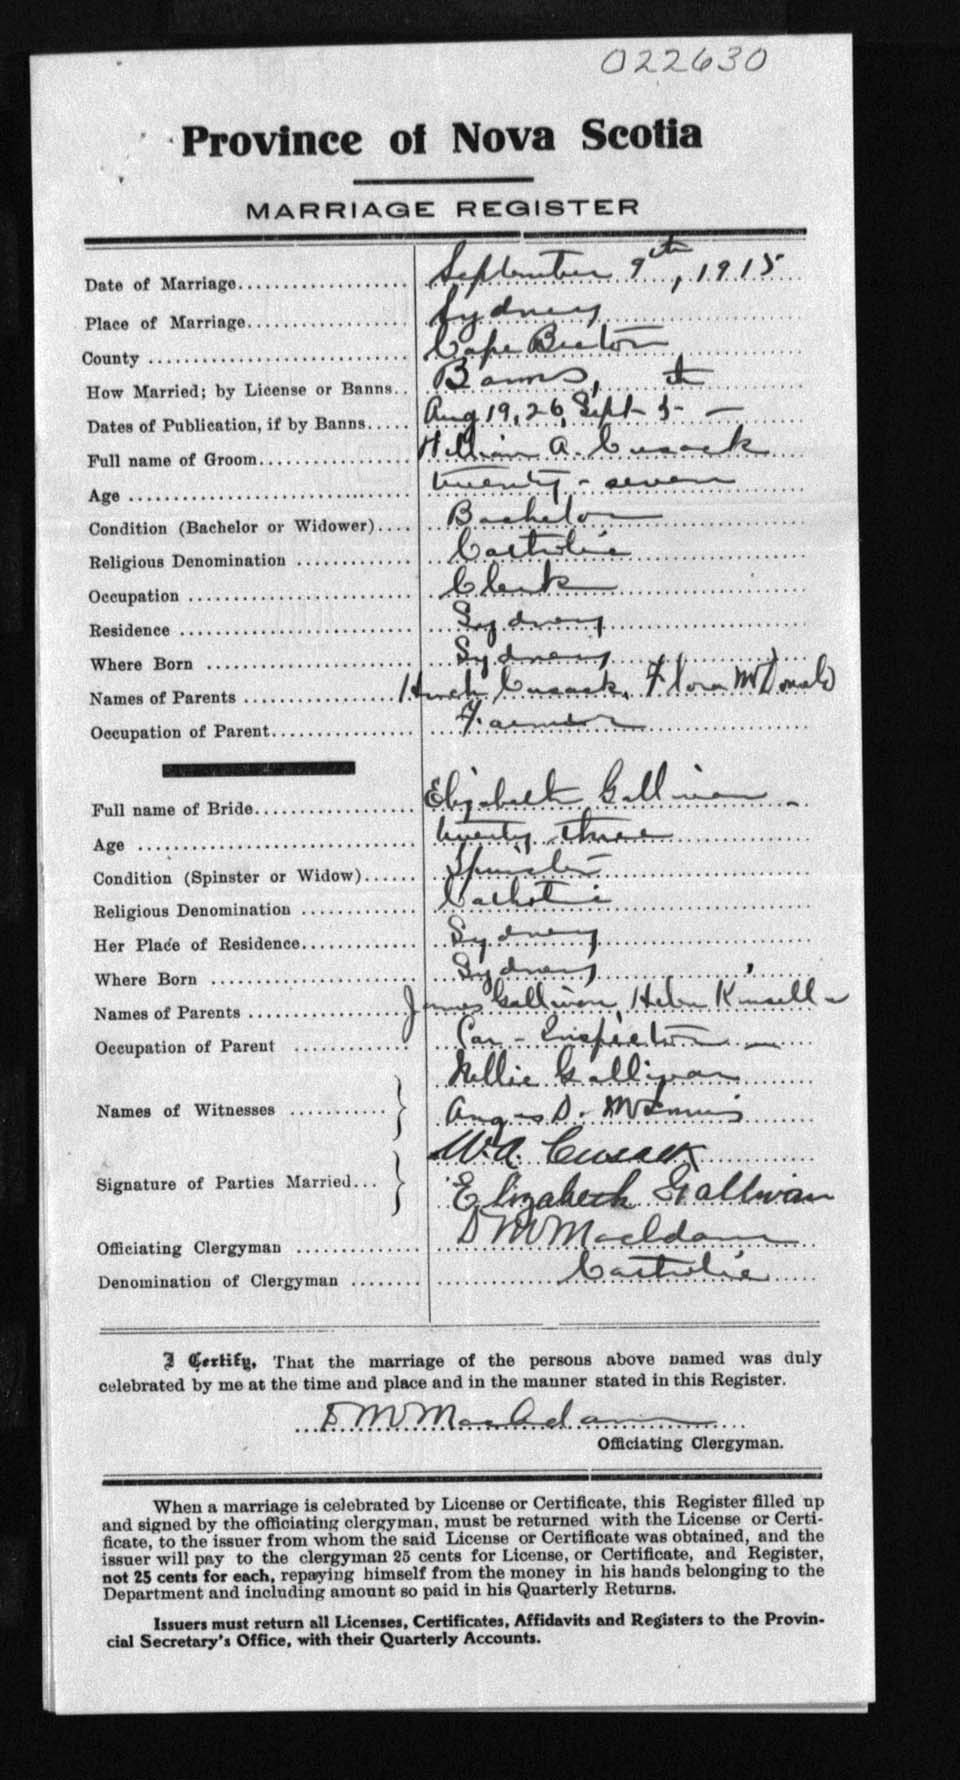 022630
Province of Nova Scotia
MARRIAGE REGISTER
Date of Marriage September 9th, 1915
Place of Marriage Sydney
County Cape Breton
How Married; by License or Banns Banns, th
Dates of Publication, if by Banns Aug 19, 26, Sept 5 -
Full name of Groom William A. Cusack
Age twenty-seven
Condition (Bachelor or Widower) Bachelor
Religious Denomination Catholic
Occupation Clerk
Residence Sydney
Where Born Sydney
Names of Parents Cusack, Flora McDonald
Occupation of Parent Farmer
Full name of Bride Elizabeth Gallivan
Age twenty three
Condition (Spinster or Widow) Spinster
Religious Denomination Catholic
Her Place of Residence Sydney
Where Born Sydney
Names of Parents James Gallivan, Helen Kinsella
Occupation of Parent Car-Inspector
Names of Witnesses Nellie Gallivan
Angus D. McInnis
Signature of Parties Married W.A. Cusack
Elizabeth Gallivan
Officiating Clergyman D M MacAdam
Denomination of Clergyman Catholic
I Certify, That the marriage of the persons above named was duly
celebrated by me at the time and place and in the manner stated in this Register.
D M MacAdam
Officiating Clergyman.
When a marriage is celebrated by License or Certificate, this Register filled up
and signed by the officiating clergyman, must be returned with the License or Certi-
ficate, to the issuer from whom the said License or Certificate was obtained, and the
issuer will pay to the clergyman 25 cents for License, or Certificate, and Register,
not 25 cents for each, repaying himself from the money in his hands belonging to the
Department and including amount so paid in his Quarterly Returns.
Issuers must return all Licenses, Certificates, Affidavits and Registers to the Provin-
cial Secretary's Office, with their Quarterly Accounts.